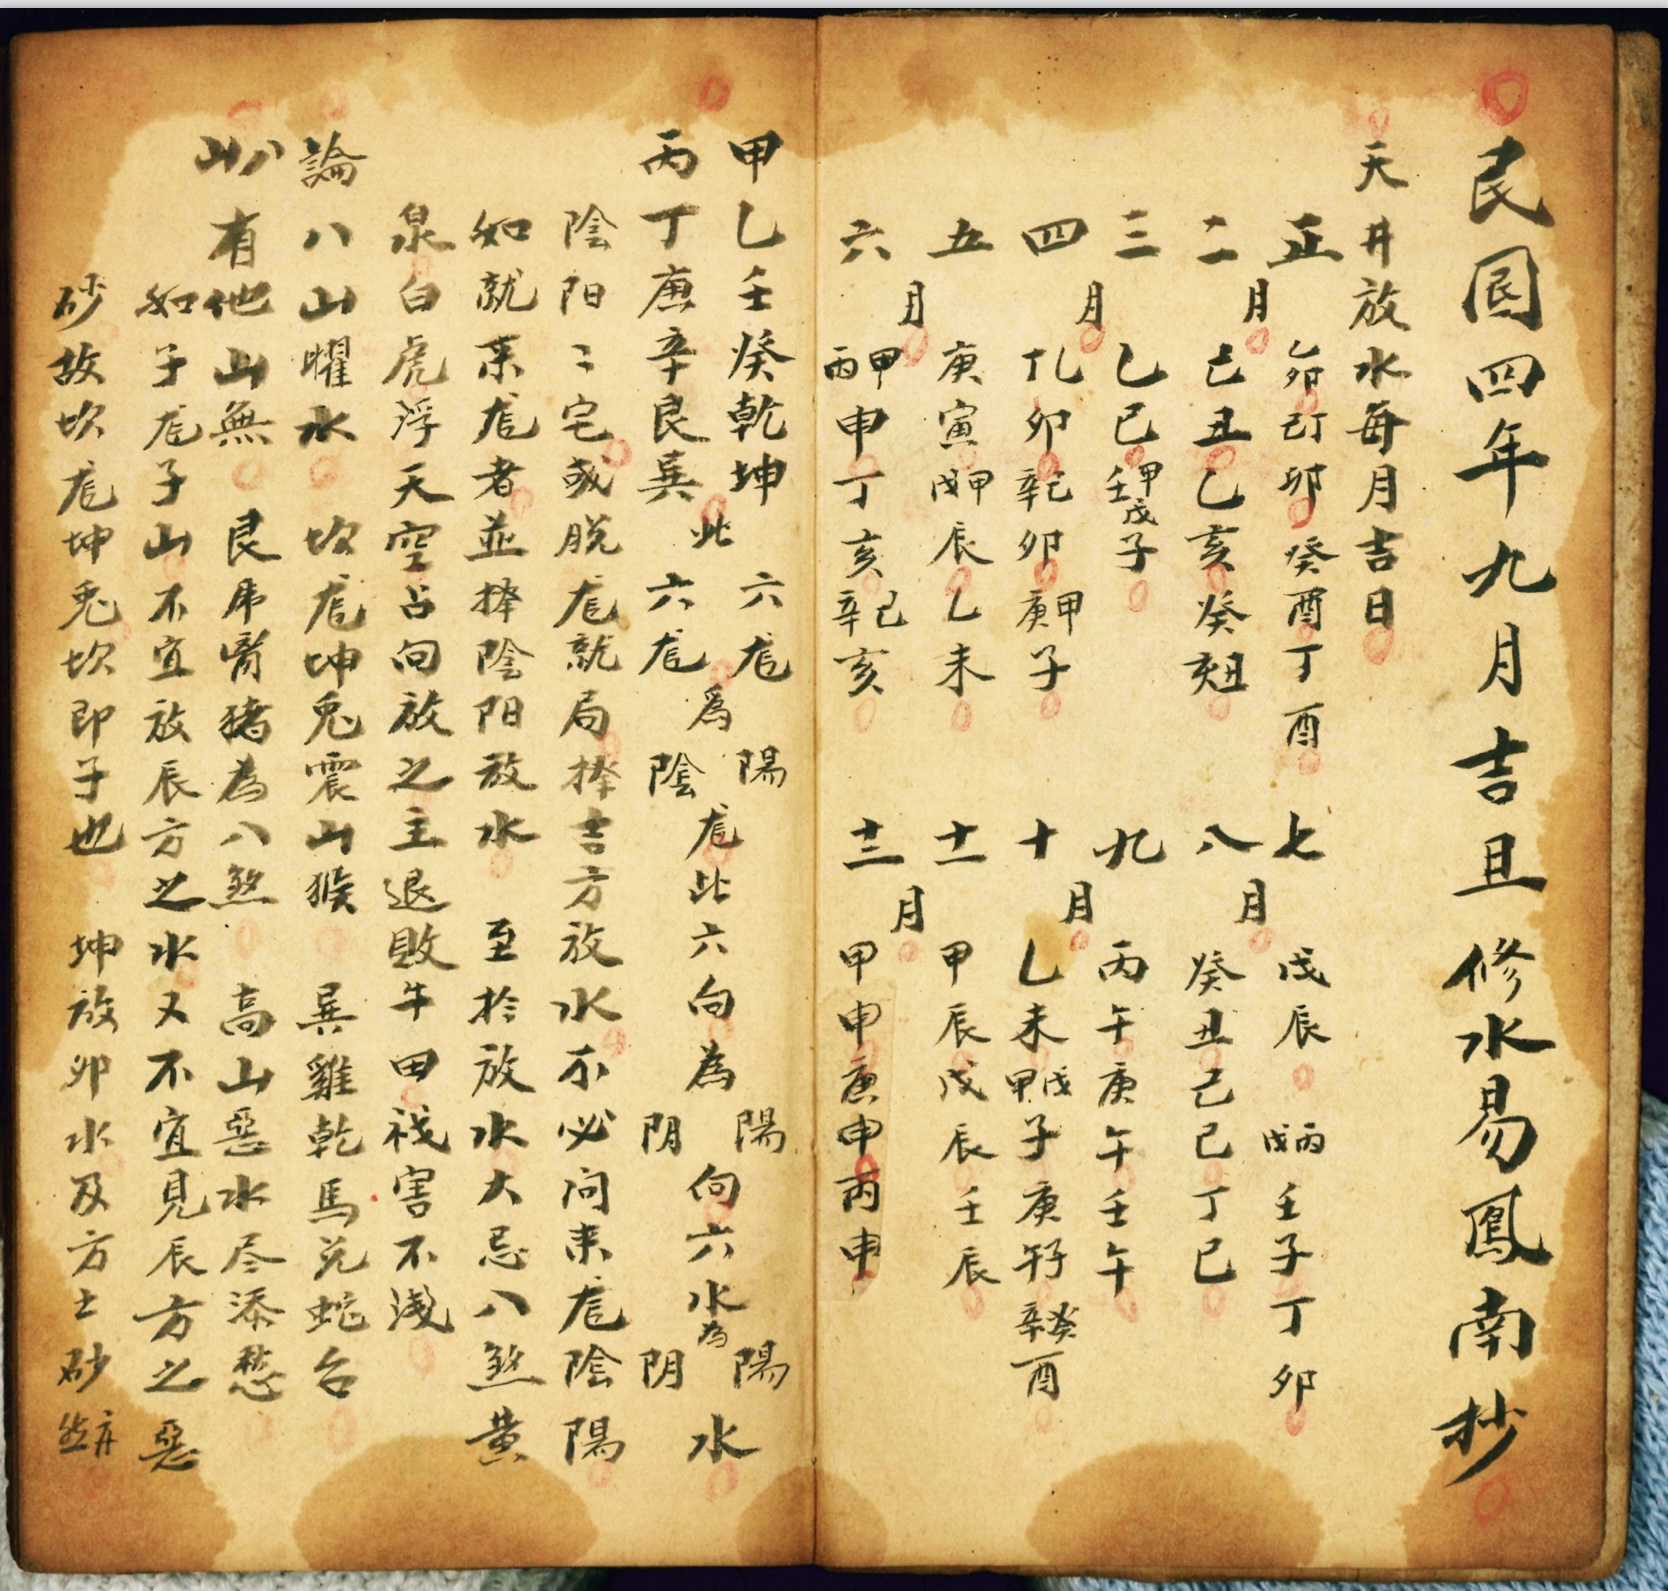 民国四年九月吉旦修水易鳳南抄
天井放水每月吉日
正二月
卯己丁卯癸酉丁酉
己丑乙亥癸亥
三四月
乙巳甲戌壬子
卯辛己卯庚甲子
五六月
庚寅戊甲辰乙未
丙甲申丁亥辛己亥
七八月
戊辰戊丙壬子丁卯
癸丑己巳丁巳
九十月
丙午庚午壬午
乙未甲戌子庚午子辛癸酉
十一十二月
甲辰戊辰壬辰
甲申庚申丙申
甲乙壬癸乾坤
丙丁庚辛艮巽
此六六龙為陽陰龙此六向為陽阴向六水為陽阴水
陰阳二宅或脱龙就局擇吉方放水不必问来龙陰陽
如就来龙者並擇陰阳放水至於放水大忌八煞黄
泉白虎浮天空占向放之主退敗牛田戕害不淺
論八山曜水坎龙坤兔震山猴巽雞乾馬兑蛇台
有他山無艮虎离猪為八煞高山惡水尽添愁
如子龙子山不宜放辰方之水又不宜見辰方之惡
砂故坎龙坤兔坎即子也坤放卯水及方士砂